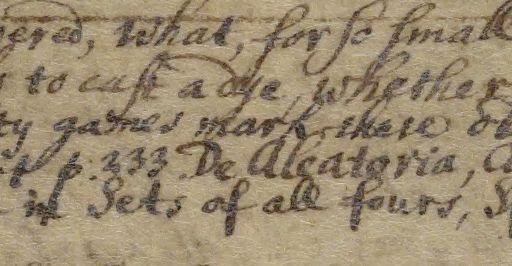 ered, What, for so small
to cast a dye, whether
ty games mark there
p. 333 De Aleatoria,
in Sets of all fours,